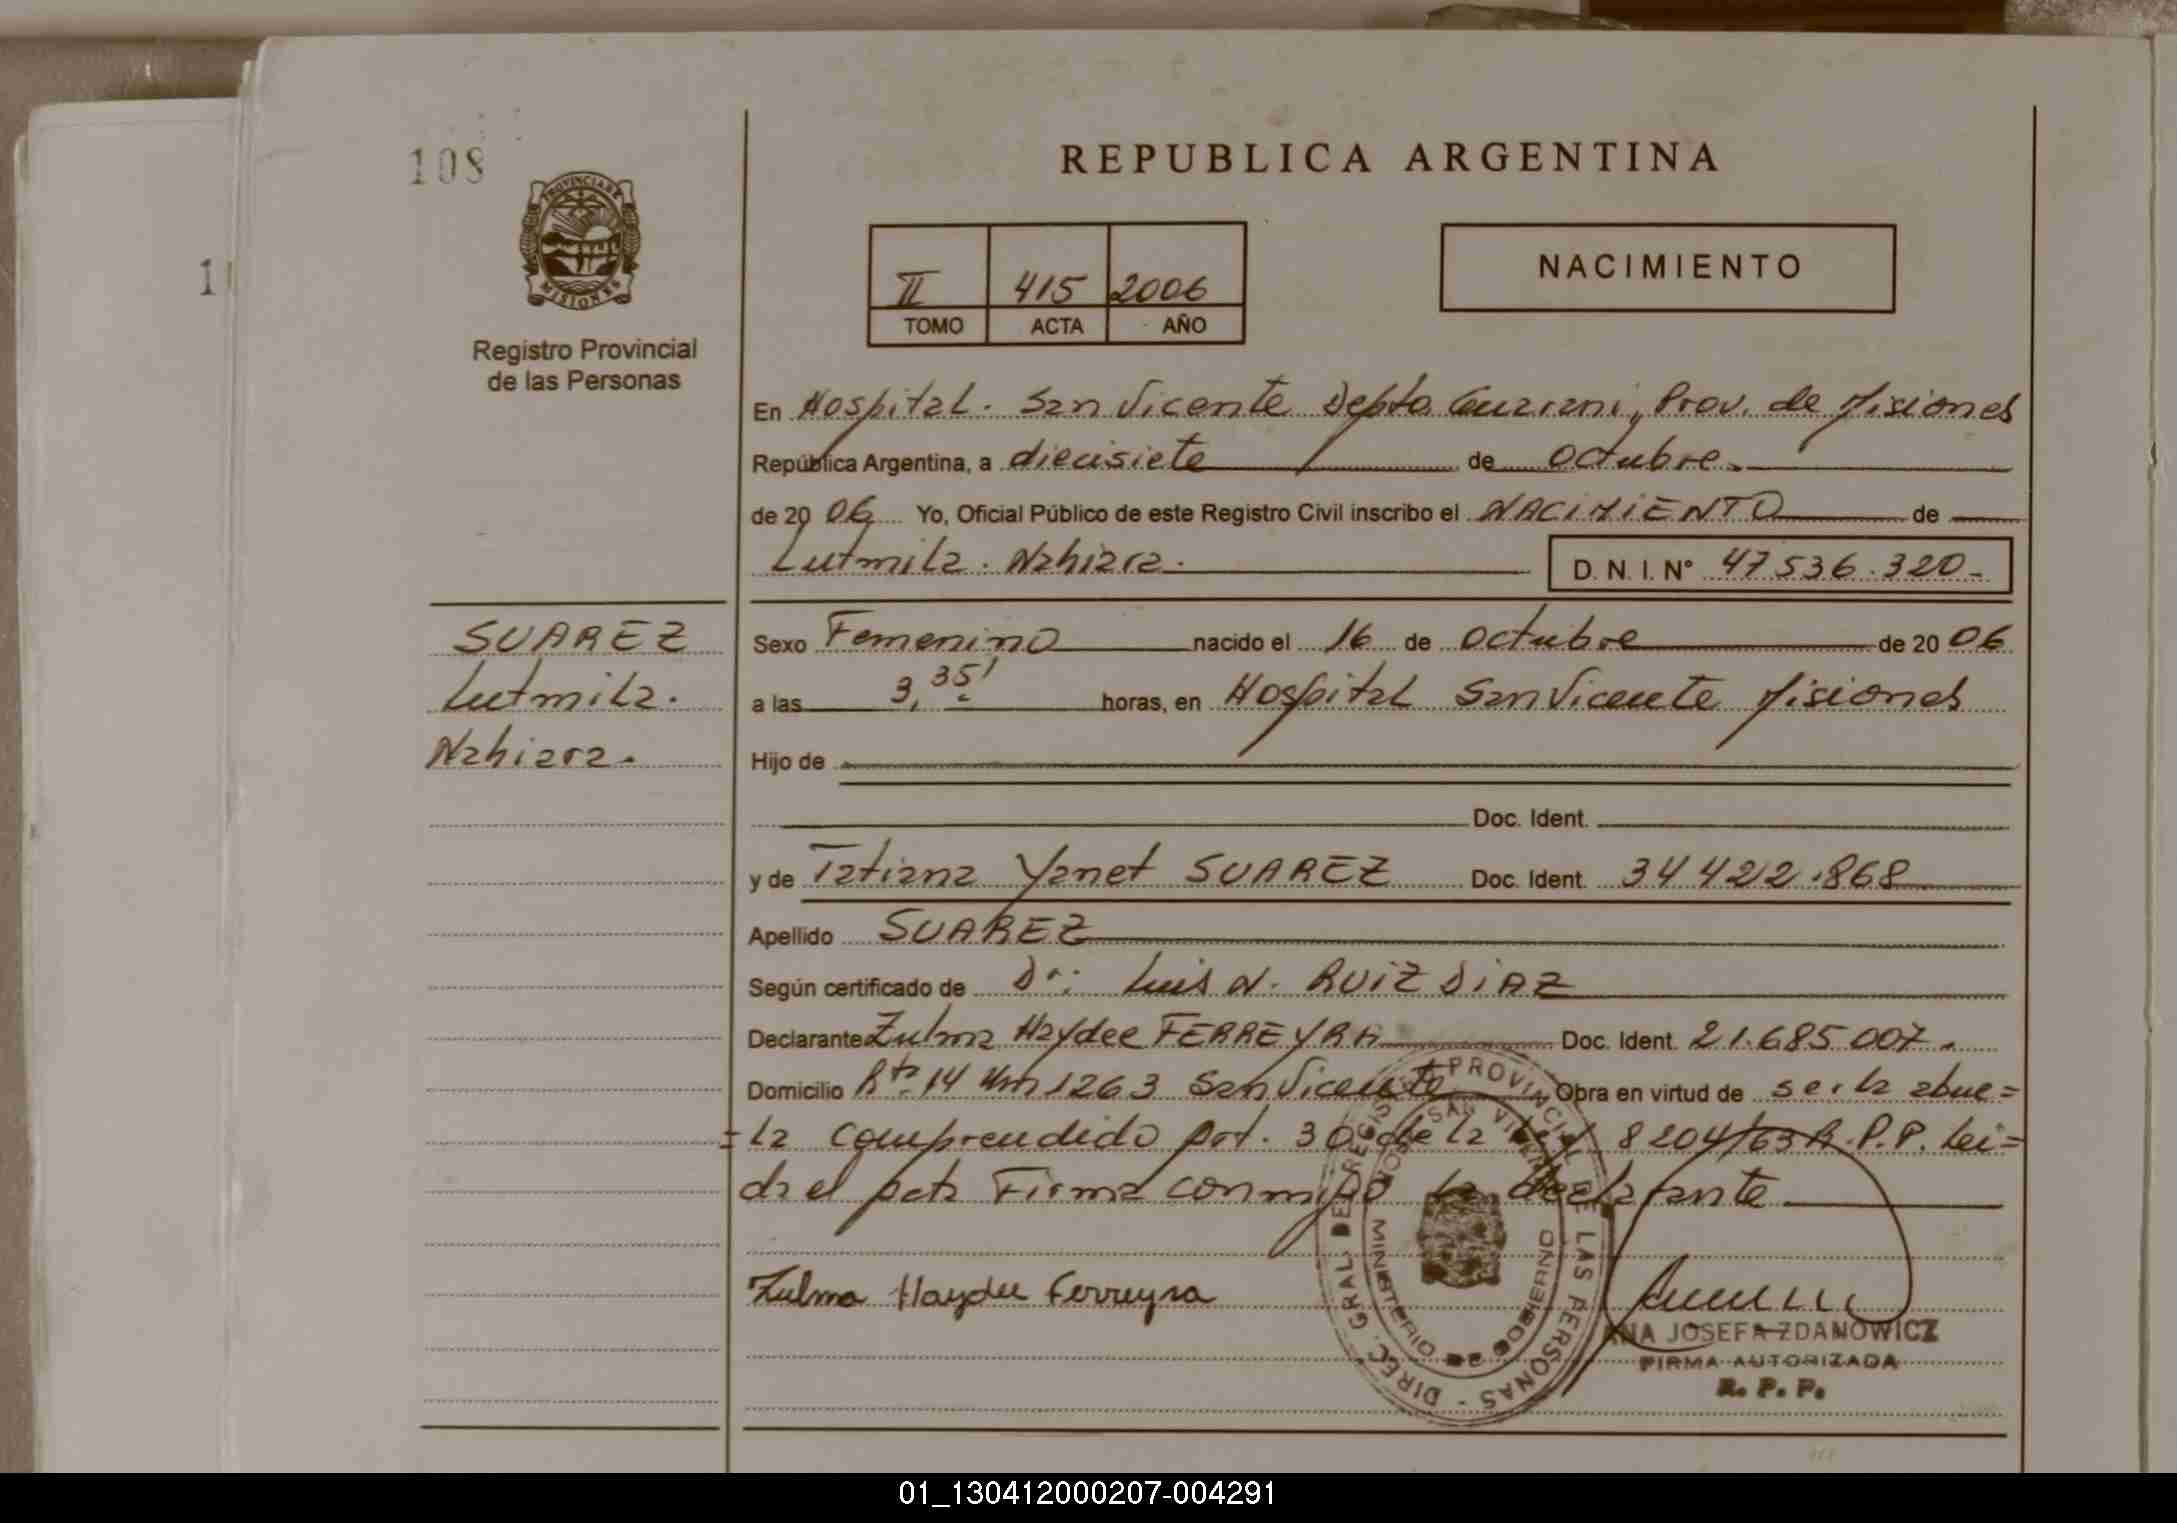 108
PROVINCIA DE
MISIONES
Registro Provincial
de las Personas
REPUBLICA ARGENTINA
II 415 2006
TOMO ACTA AÑO
NACIMIENTO
En Hospital. San Vicente Depto Guarani, Prov. de Misiones
República Argentina, a diecisiete de octubre.
de 2006 Yo, Oficial Público de este Registro Civil inscribo el NACIMIENTO de
Lutmila. Nahiara.
D. N. I. N° 47 536.320-
SUAREZ
Lutmila.
Nahiara.
Sexo Femenino nacido el 16 de octubre de 2006
a las 3,35' horas, en Hospital San Vicente Misiones
Hijo de
Doc. Ident.
y de Tatiana Yanet SUAREZ Doc. Ident. 34 422.868
Apellido SUAREZ
Según certificado de Dr: Luis N. RUIZ DIAZ
Declarante Zulma Haydee FERREYRA Doc. Ident. 21.685 007.
Domicilio Rta 14 Km 1263 San Vicente Obra en virtud de ser la abue=
=la comprendido Art. 30 de la Ley 8204/63 R.P.P. Lei=
da el acta Firma conmigo la declarante
Zulma Haydee Ferreyra
DIREC. GRAL. DE REGISTRO PROVINCIAL DE LAS PERSONAS -
MINISTERIO DE GOBIERNO
ANA JOSEFA ZDANOWICZ
FIRMA AUTORIZADA
R. P. P.
01_130412000207-004291